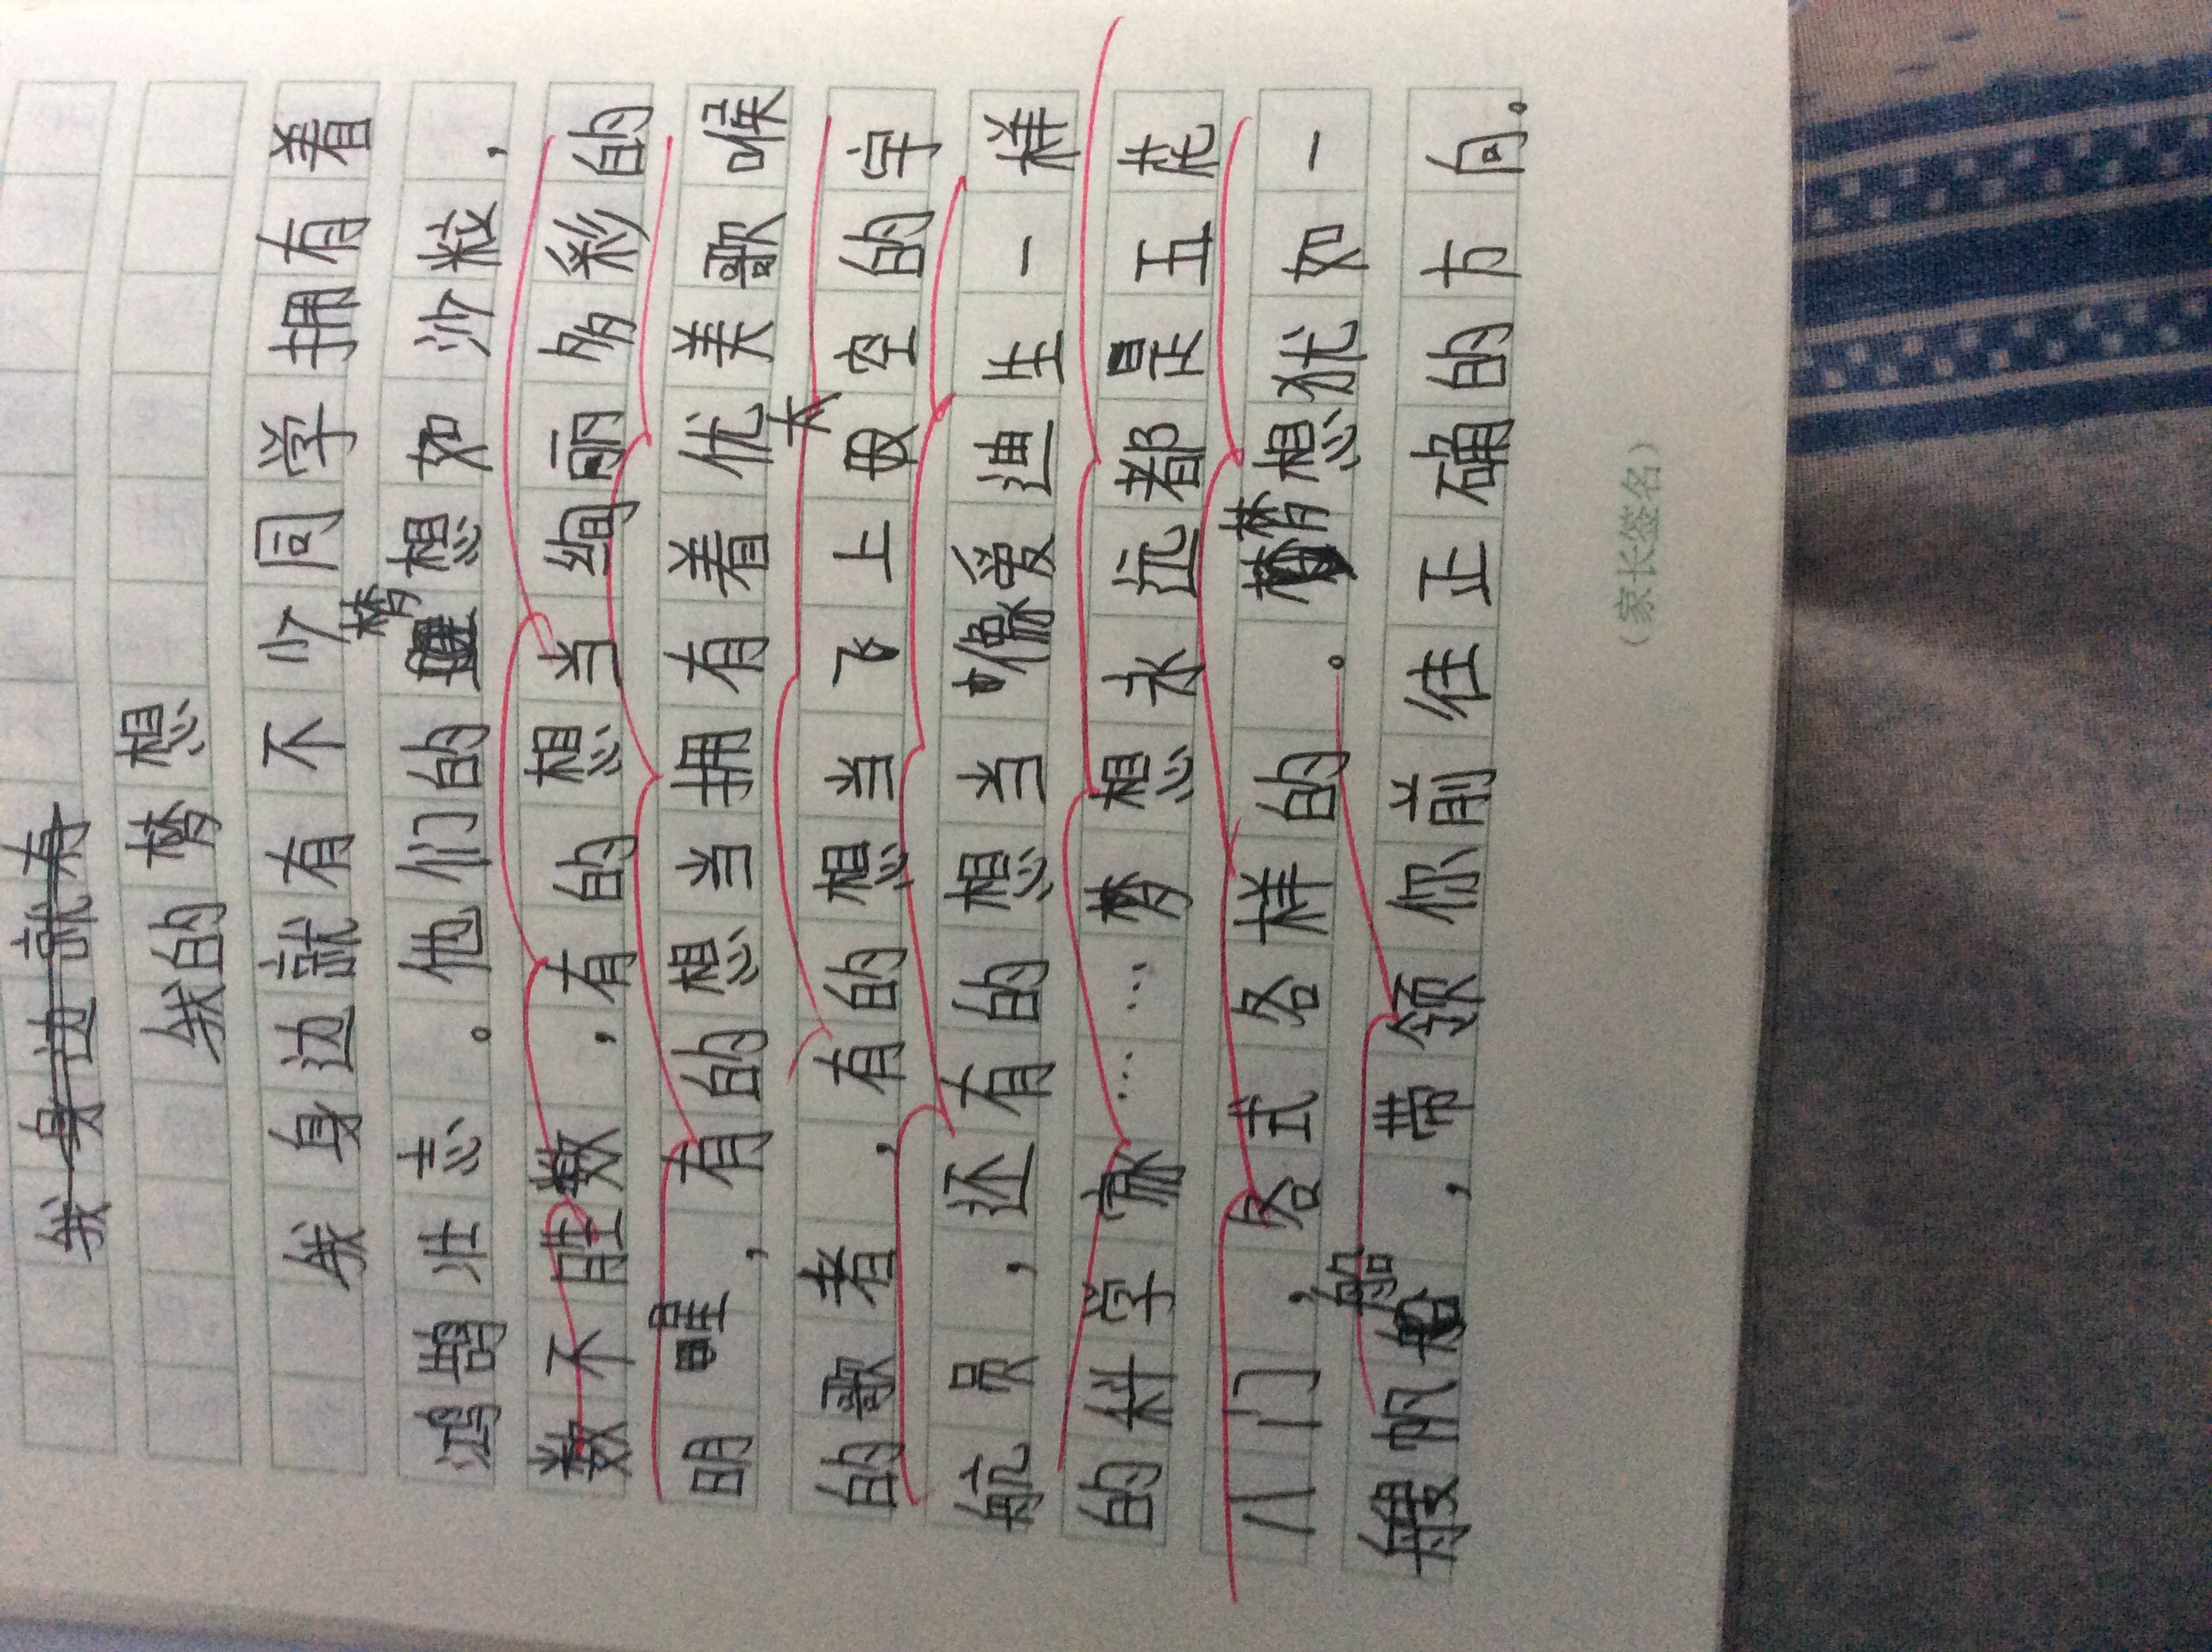 我身边就有
我的梦想
我身边就有不少同学拥有着
鸿鹄壮志。他们的梦想如沙粒，
数不胜数，有的想当绚丽多彩的
明星，有的想当拥有着优美歌喉
的歌者，有的想当飞上太空的宇
航员，还有的想当像爱迪生一样
的科学家……梦想永远都是五花
八门，各式各样的。梦想犹如一
艘帆船，带领你前往正确的方向。
（家长签名）